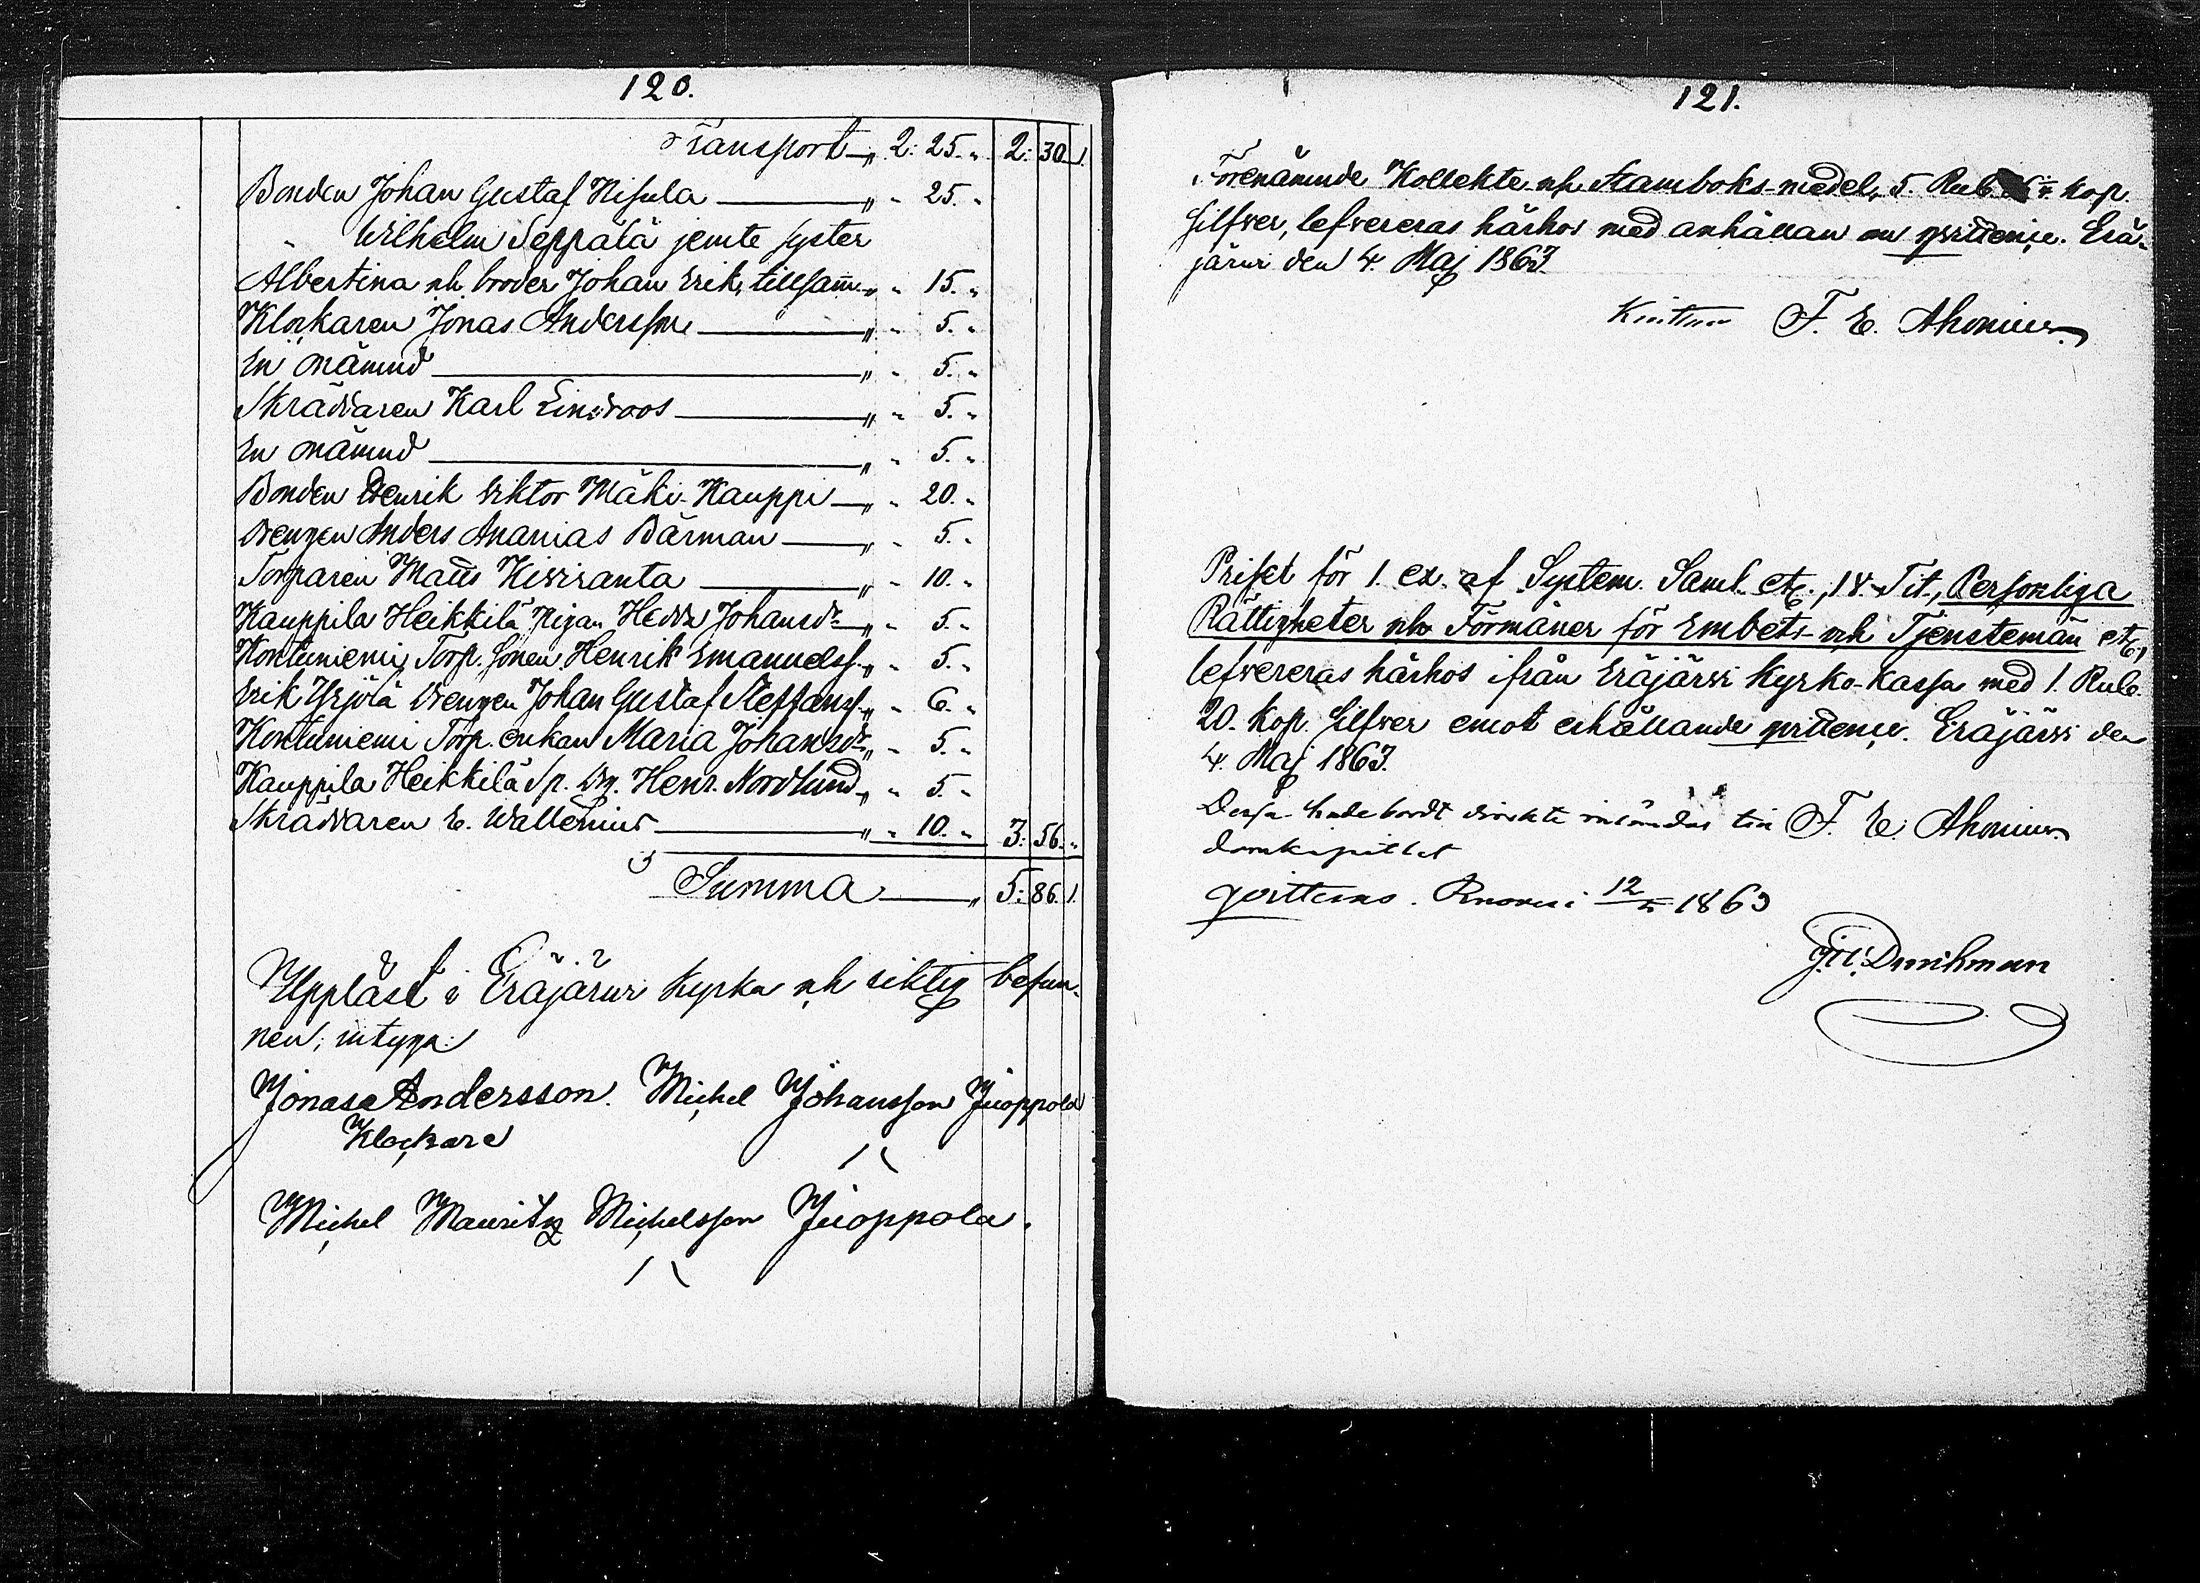 120.
Transport „ 2: 25. „ 2: 30. 1.
Bonden Johan Gustaf Hisula „ - 25. -
" Wilhelm Seppälä jemte syster
Albertina och broder Johan Erik, tillsam̄. „ - 15. -
Klockaren Jonas Andersson „ - 5. -
En onämnd „ - 5. -
Skräddaren Karl Lindroos „ - 5. -
En onämnd „ - 5. -
Bonden Henrik Viktor Mäki-Kauppi „ - 20. -
Drengen Anders Ananias Bärman „ - 5. -
Torparen Matts Kiviranta „ - 10. -
Kauppila Heikkilä Pigan Hedda Johansdr „ - 5. -
Kontuniemi Torp. sonen Henrik Emanuelss. „ - 5. -
Erik Yrjölä Drengen Johan Gustaf Steffanss. „ - 6. -
Kontuniemi Torp. enkan Maria Johansdr „ - 5. -
Kauppila Heikkilä Sp. Dg. Henr. Nordlund „ - 5. -
Skräddaren E. Wallenius „ - 10. - 3: 56. „
Summa „ 5: 86. 1.
Uppläst i Eräjärvi Kyrka och riktig befun-
nen, intyga:
Jonas Andersson. Michel Johansson Juoppola
Klockare
Michel Mauritz Michelsson Juoppola.
121.
Förenämnde Kollekte och Stamboks-medel, 5. Rub. kop.
silfver, lefvereras härhos med anhållan om qvittence. Erä-
järvi den 4. Maj 1863.
F. E. Ahonius.
Priset för 1. ex. af System. Saml. etc., 14. Tit., Personliga
Rättigheter och Förmåner för Embets- och Tjenstemän etc.,
lefvereras härhos ifrån Eräjärvi Kyrko-Kassa med 1. Rub.
20. Kop. silfver emot erhållande qvittence. Eräjärvi den
4. Maj 1863.
Dessa hade bordt direkte insändas till F. E. Ahonius.
domkapitlet
qvitteras. 12/5 1863